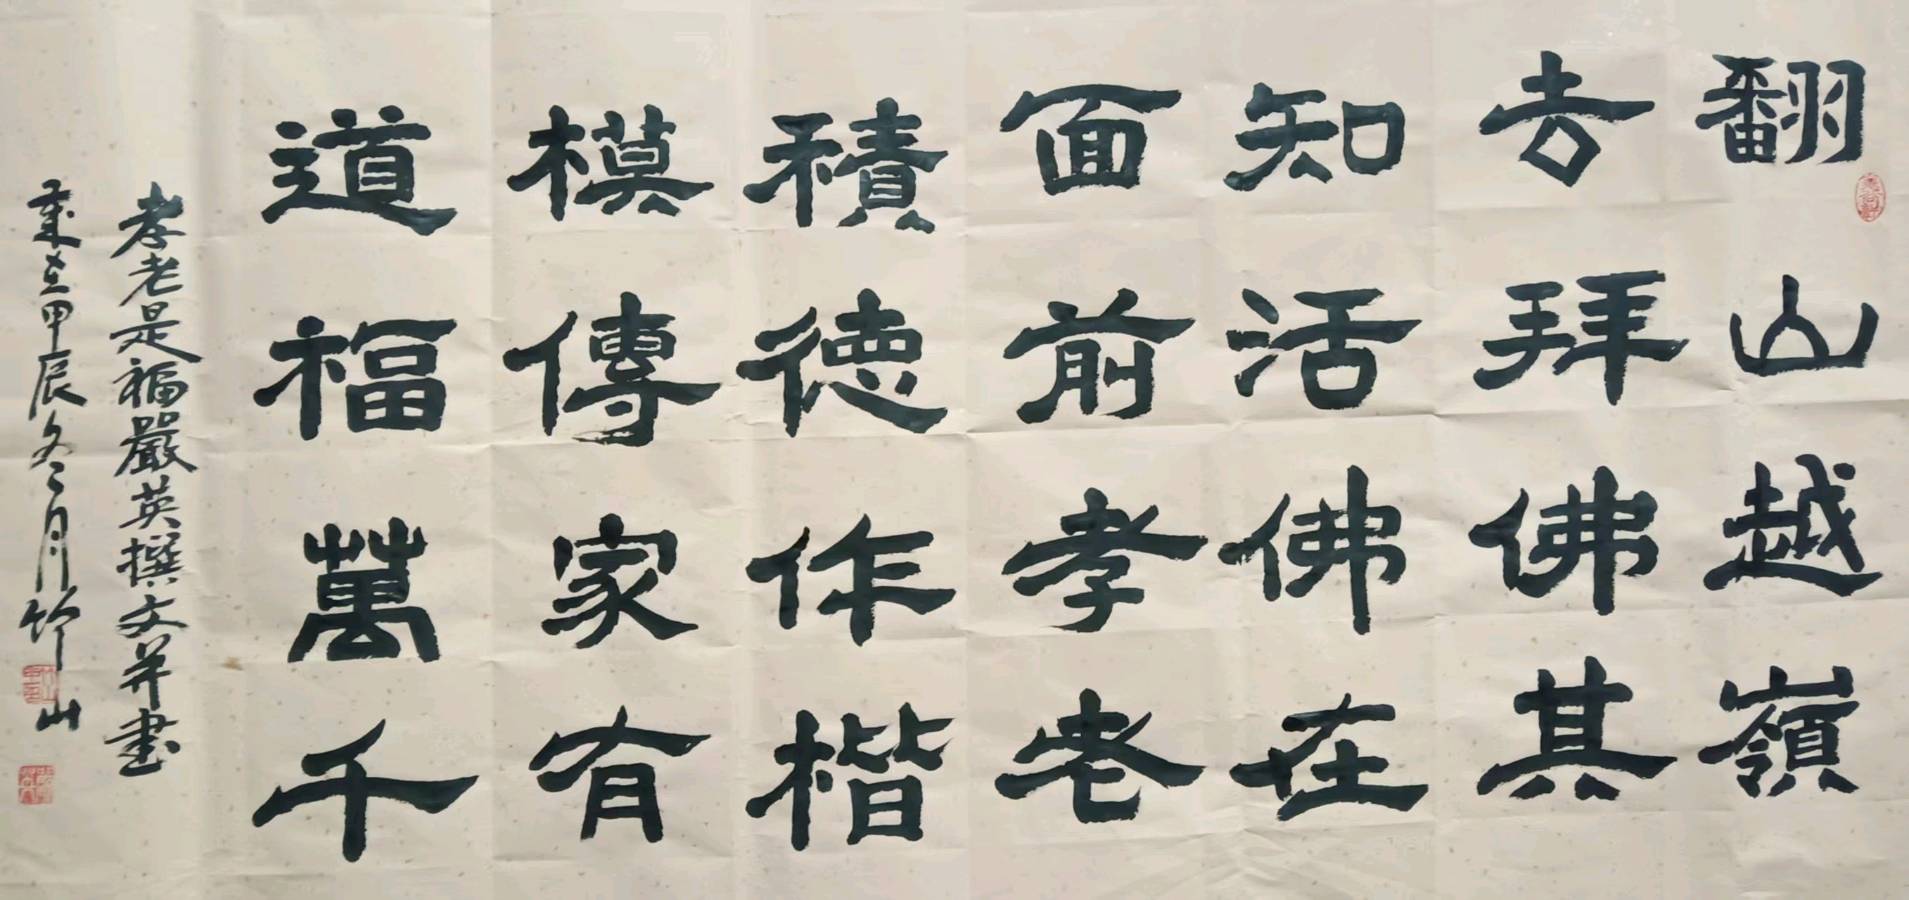 翻山越嶺
去拜佛其
知活佛在
面前孝老
積德作楷
模傳家有
道福萬千
孝老是福嚴英撰文并書
歲在甲辰冬月竹山